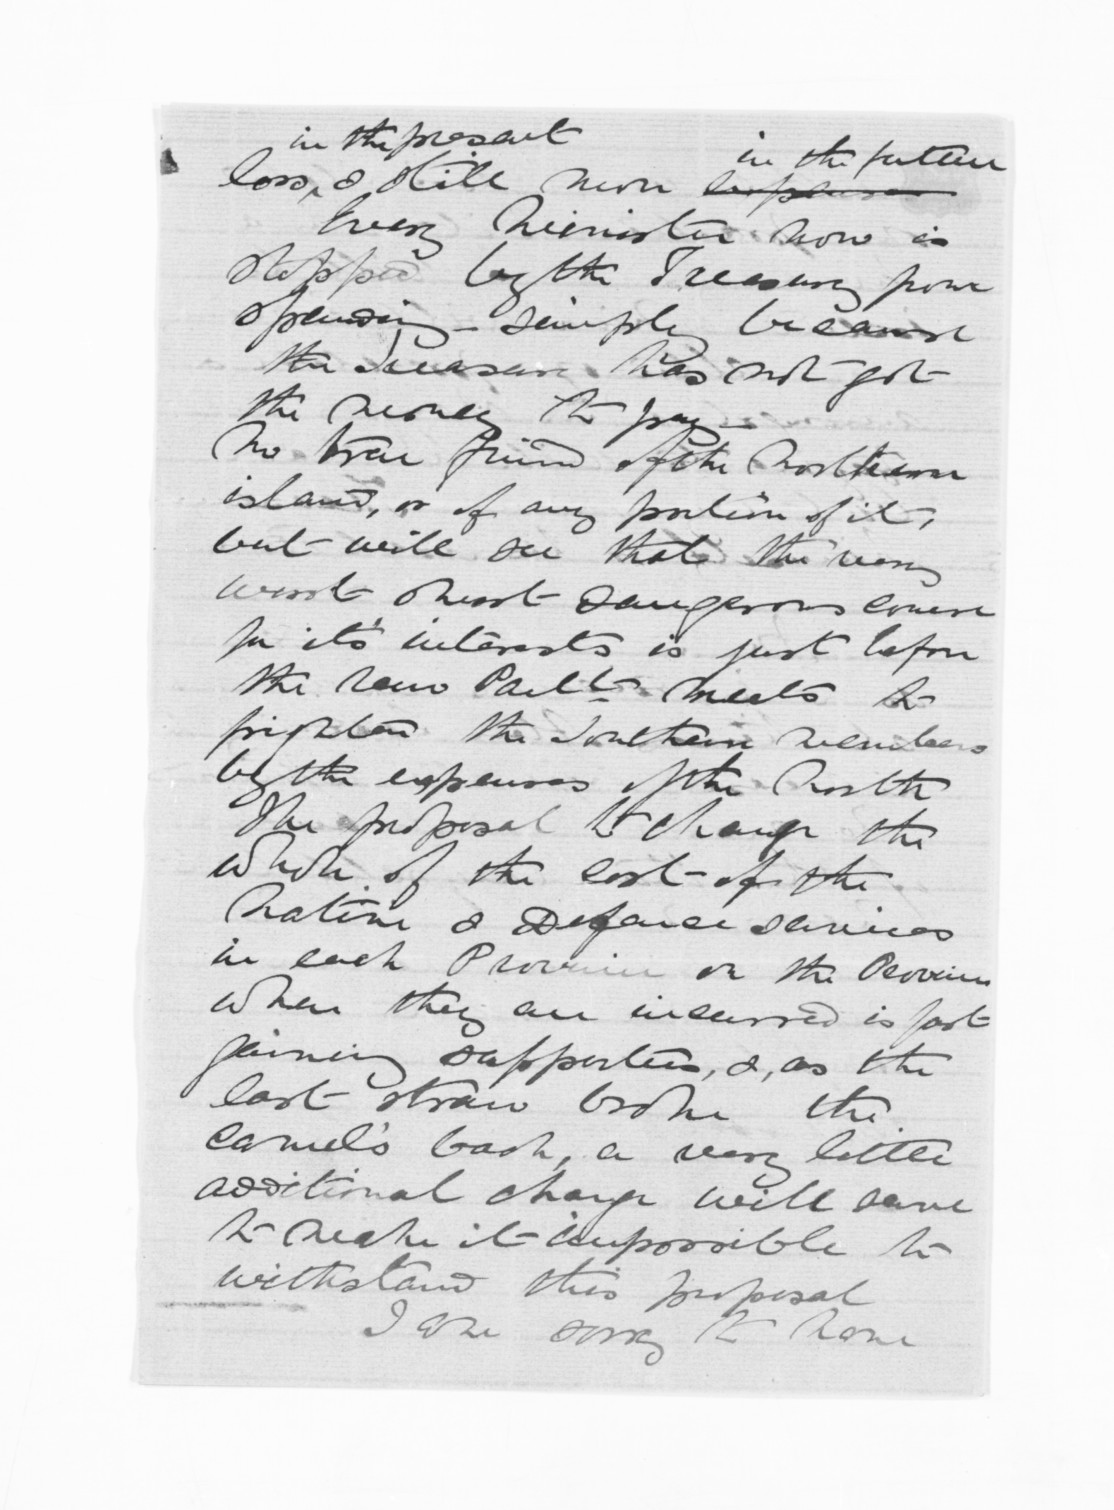 in the present in the future
loss, & still more expense
Every Minister now is
stopped by the Treasury from
spending - simply because
the Treasury has not got
the money to pay -
No true friend of the Northern
island, or of any portion of it,
but will see that the very
worst & most dangerous course
for it's interests is just before
the new Parlt meets to
frighten the Southern members
by the expenses of the North
The proposal to charge the
whole of the cost of the
Native & Defence services
in each Province on the Province
where they are incurred is fast
gaining supporters, &, as the
last straw broke the
camel's back, a very little
additional charge will serve
to make it impossible to
withstand this proposal
I am sorry to have